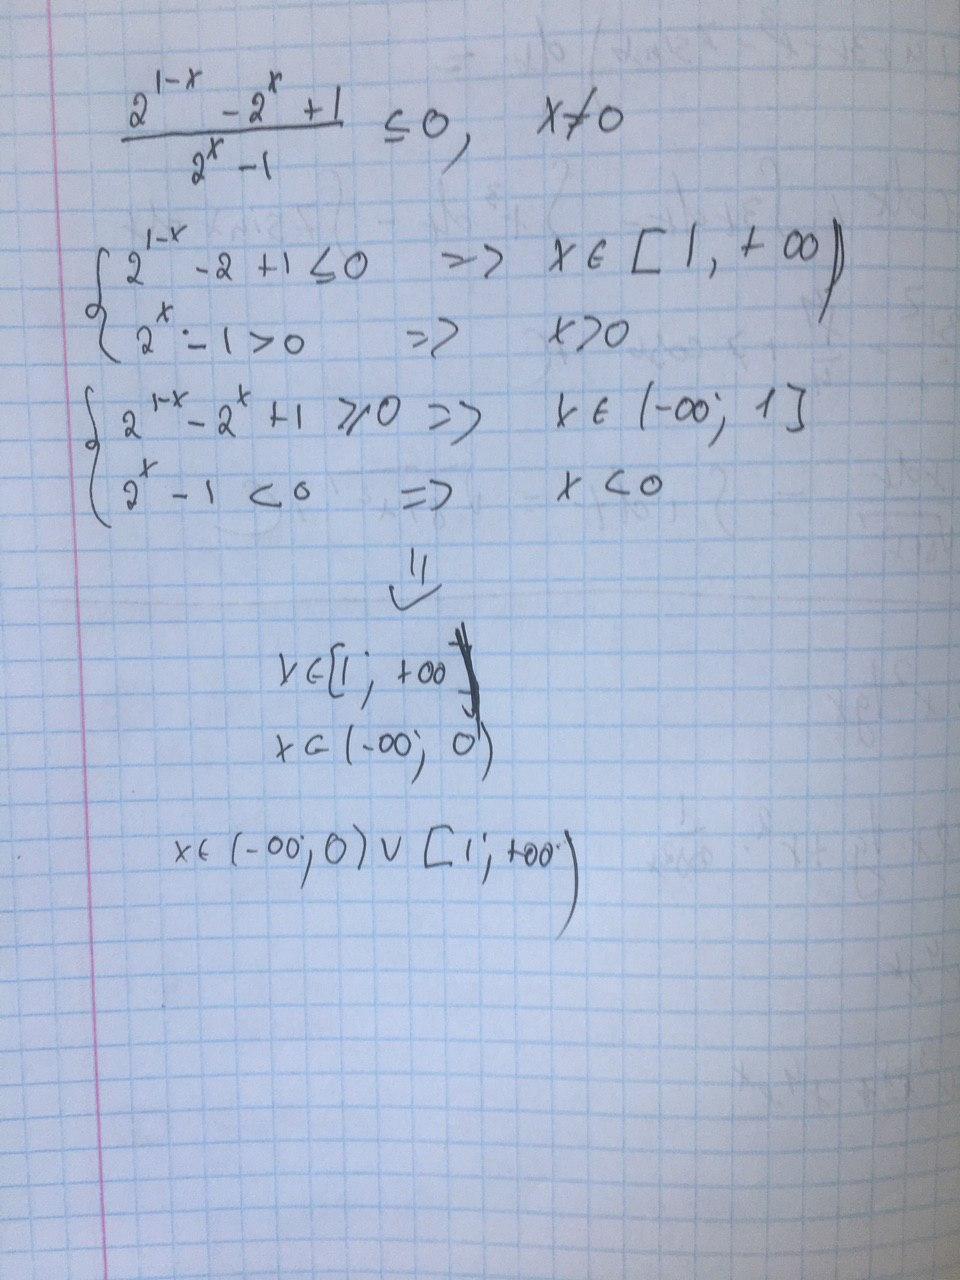 (2^(1-x) - 2^x + 1)/(2^x - 1) ≤ 0, x ≠ 0
{ 2^(1-x) - 2 + 1 ≤ 0 => x ∈ [1, +∞)
2^x - 1 > 0 => x > 0
{ 2^(1-x) - 2^x + 1 ⩾ 0 => x ∈ (-∞; 1]
2^x - 1 < 0 => x < 0
⇓
x ∈ [1; +∞)
x ∈ (-∞; 0)
x ∈ (-∞; 0) ∪ [1; +∞)